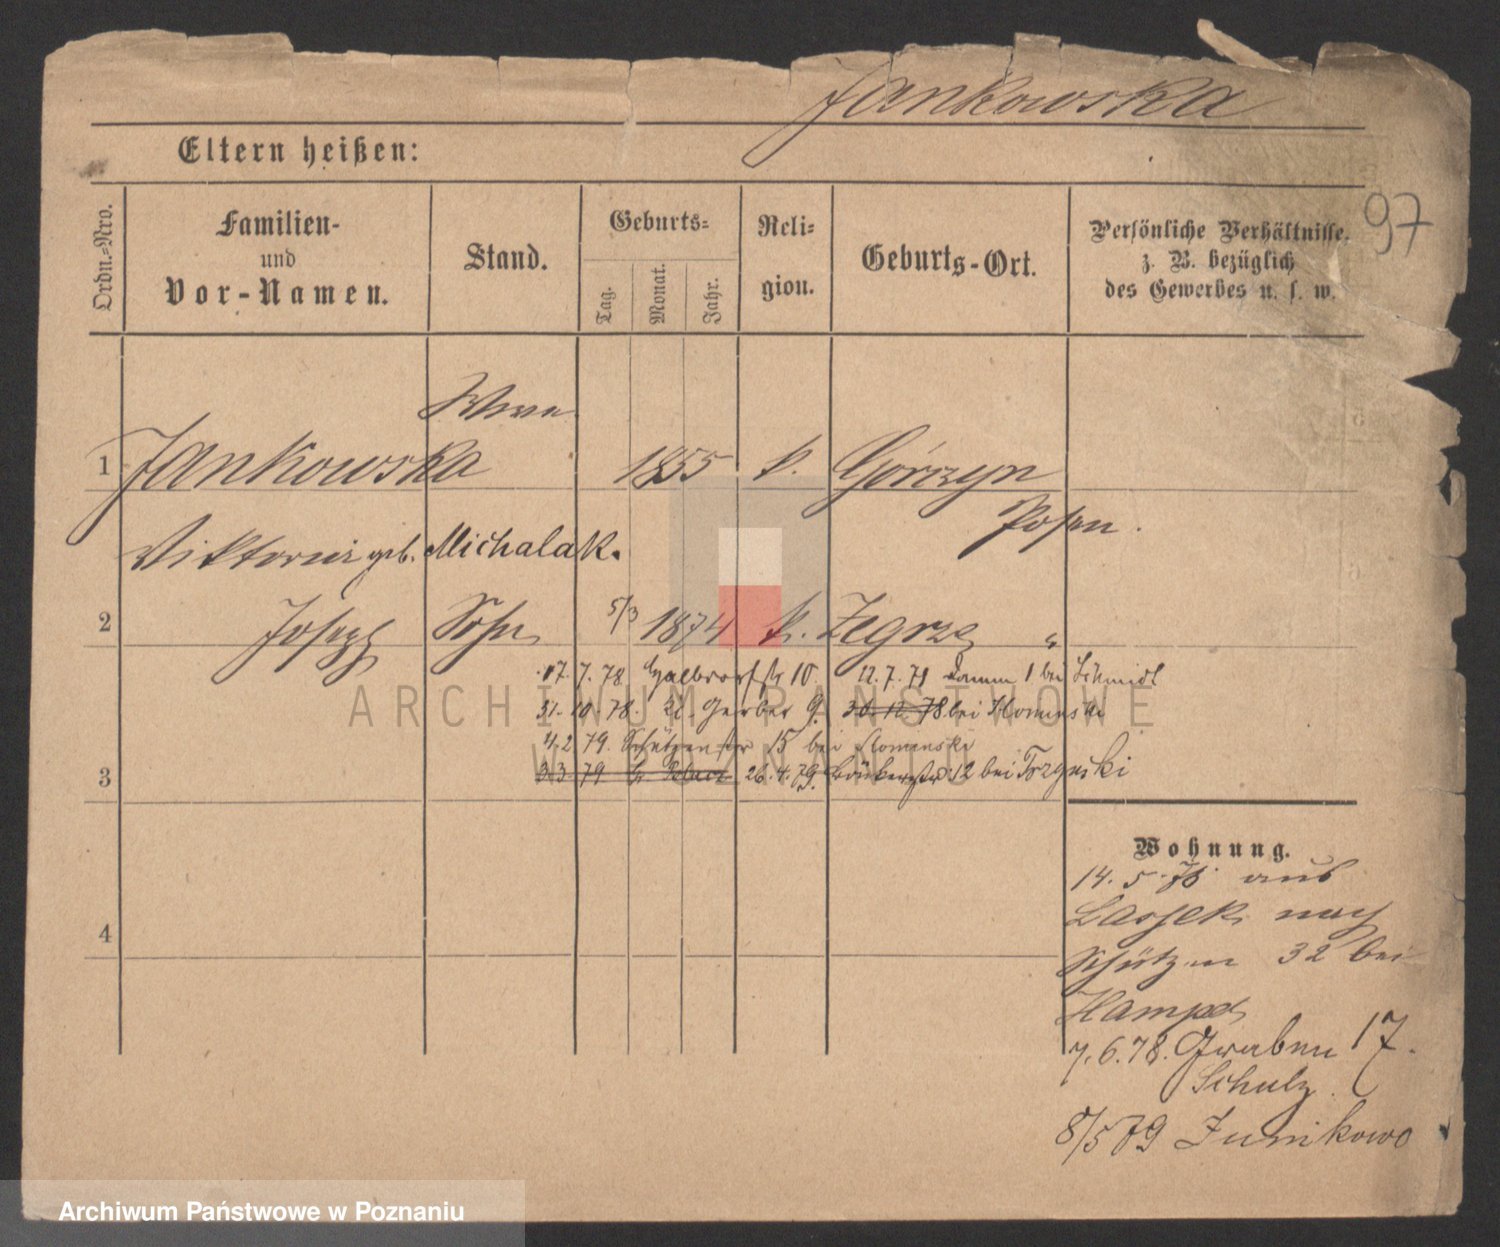 Jankowska
97
Eltern heißen:
Ordn.-Nro.
Familien-
und
Vor-Namen.
Stand.
Geburts-
Tag.
Monat.
Jahr.
Reli-
gion.
Geburts-Ort.
Persönliche Verhältnisse,
z. B. bezüglich
des Gewerbes u. s. w.
1 Jankowska 1855 k. Górczyn
Posen.
Viktoria geb. Michalak.
2 Joseph Sohn 5/3 1874 k. Zegrze "
17. 7. 78 10. 12. 7. 78 1 bei Schmidt
31. 10. 78. Kl. Gerber 9. 30. 12. 78 bei Slominski
4. 2. 79. Schützenstr 15 bei Slominski
3. 3. 79 26. 4. 79. 12 bei
3
Wohnung.
14. 5. 78. aus
Lassek nach
Schützen 32 bei
4
7. 6. 78. Graben 17.
Schulz.
8/5 79 Junikowo
ARCHIWUM PAŃSTWOWE
W POZNANIU
Archiwum Państwowe w Poznaniu